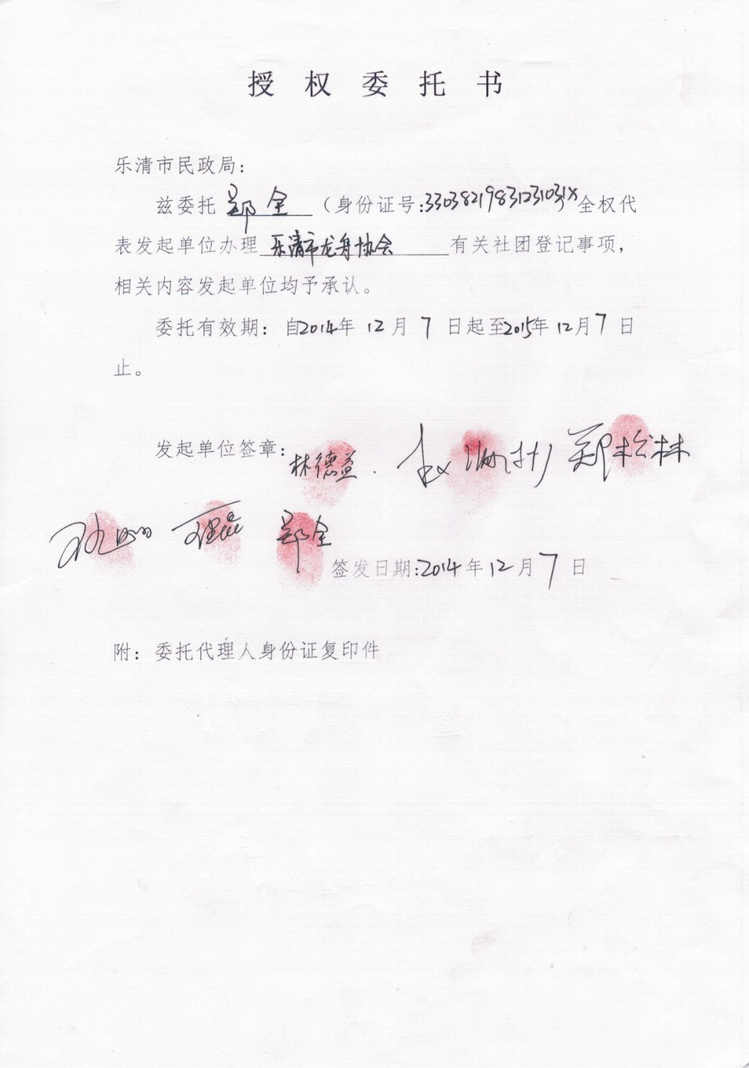 授权委托书
乐清市民政局：
兹委托 郑全 （身份证号：33038219831231031X全权代
表发起单位办理 乐清市龙舟协会 有关社团登记事项，
相关内容发起单位均予承认。
委托有效期：自2014年12月7日起至2015年12月7日
止。
发起单位签章：林德益 . 郑松林
郑全
签发日期：2014年12月7日
附：委托代理人身份证复印件